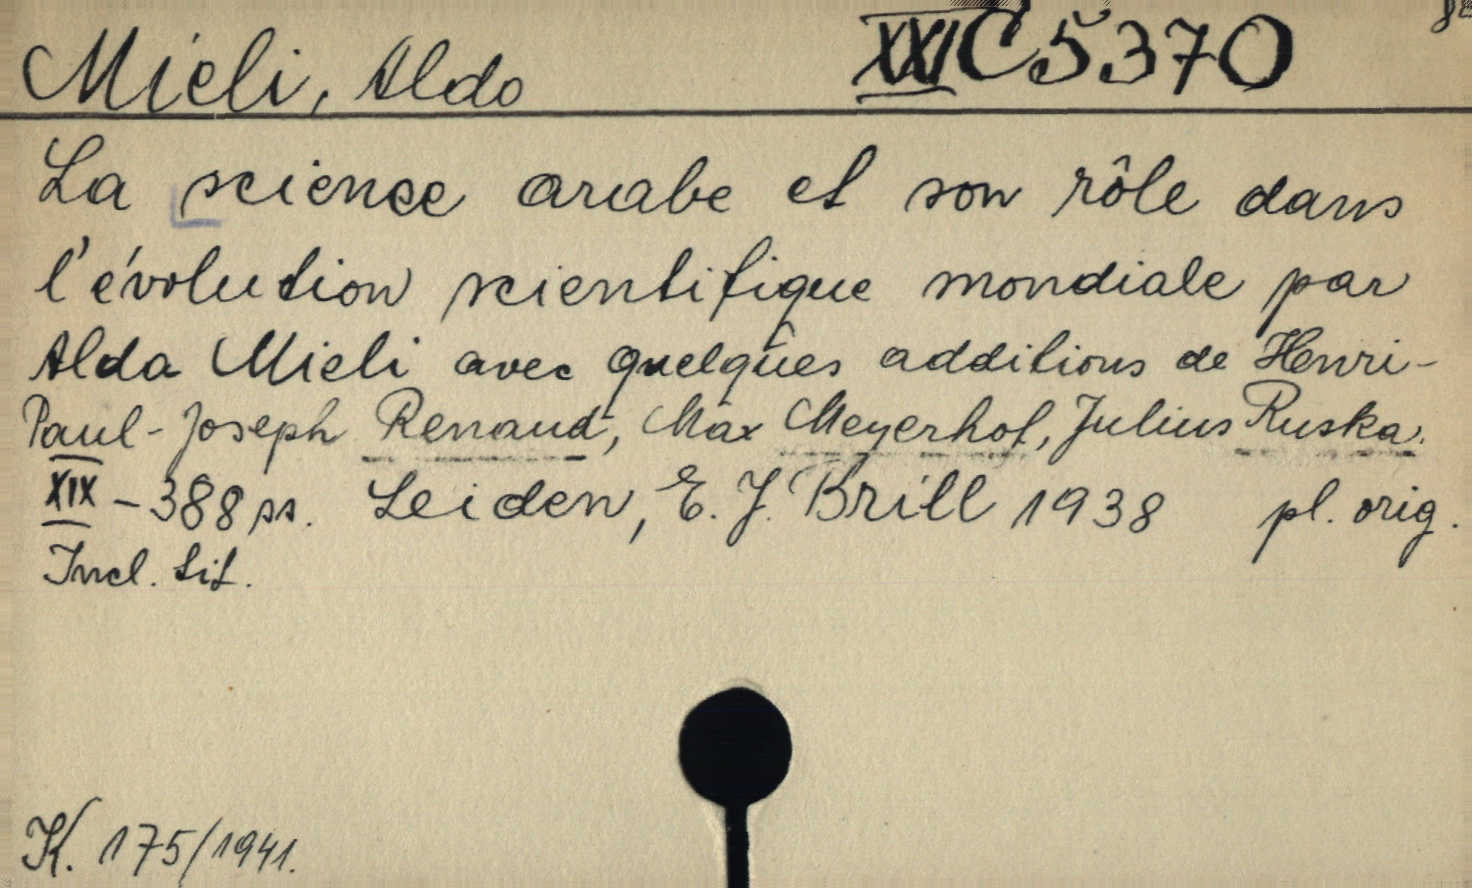 Mieli, Aldo XXI C 5370
La science arabe et son rôle dans
l'évolution scientifique mondiale par
Alda Mieli avec quelques additions de Henri-
Paul-Joseph Renaud, Max Meyerhof, Julius Ruska.
XIX - 388 ss. Leiden, E. J. Brill 1938 pl. orig.
Incl. tit.
K. 175/1941.